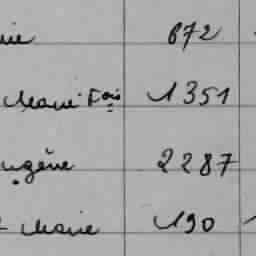 872
Marie Fois 1351
ugène 2287
Marie 190